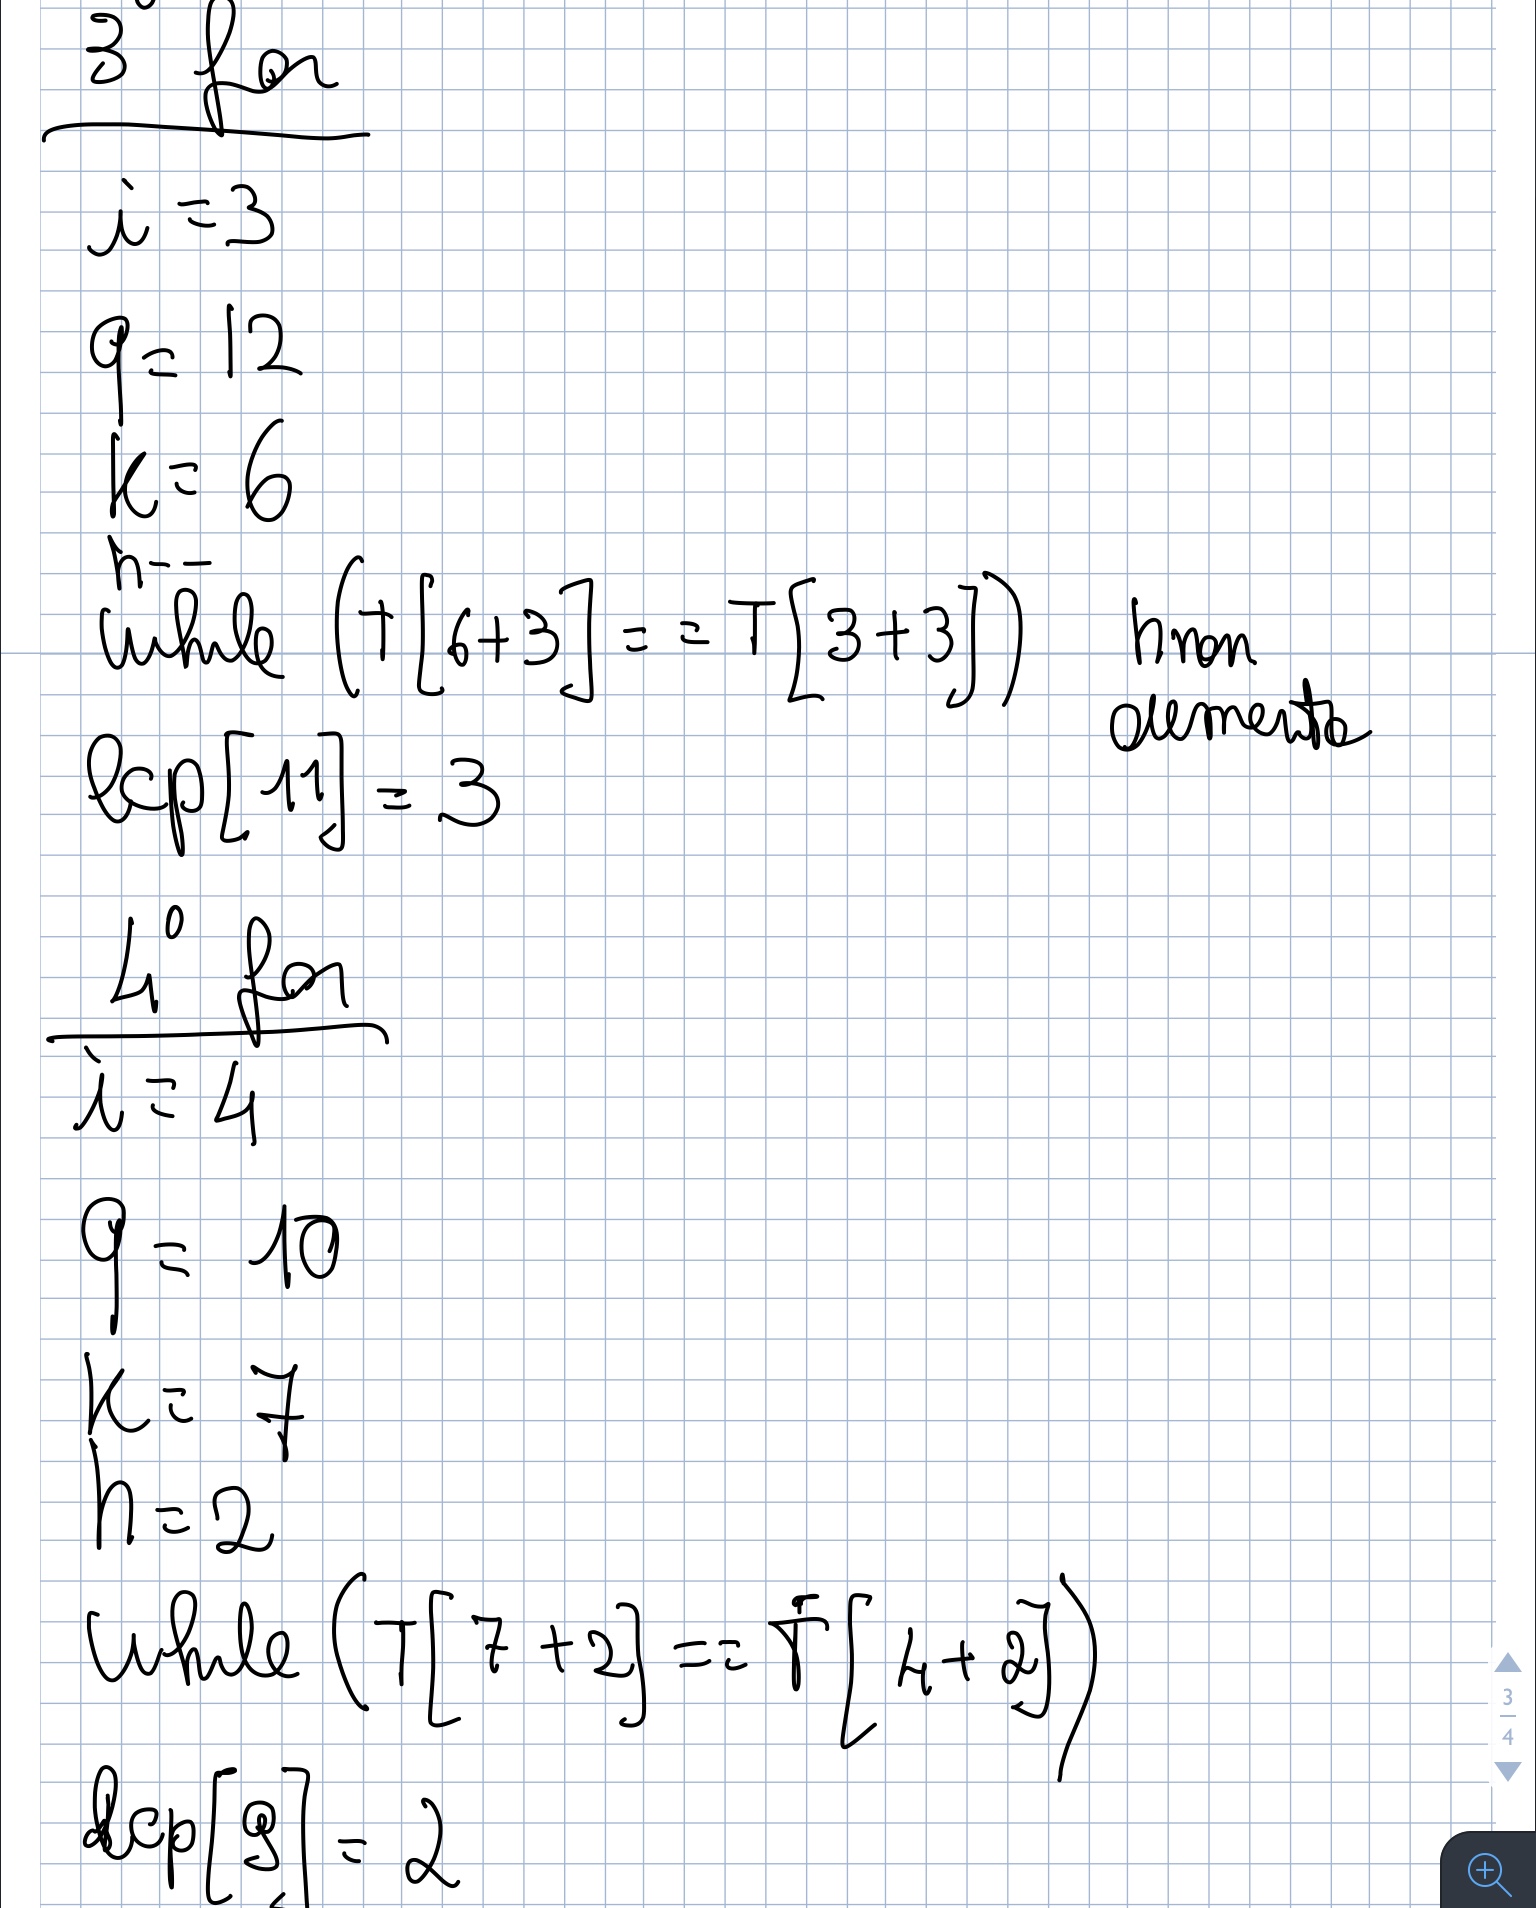 3° for
i = 3
q = 12
k = 6
h--
while (T[6+3] == T[3+3]) h non
aumenta
lcp[11] = 3
4° for
i = 4
q = 10
k = 7
h = 2
while (T[7+2] == T[4+2])
lcp[9] = 2
3
4